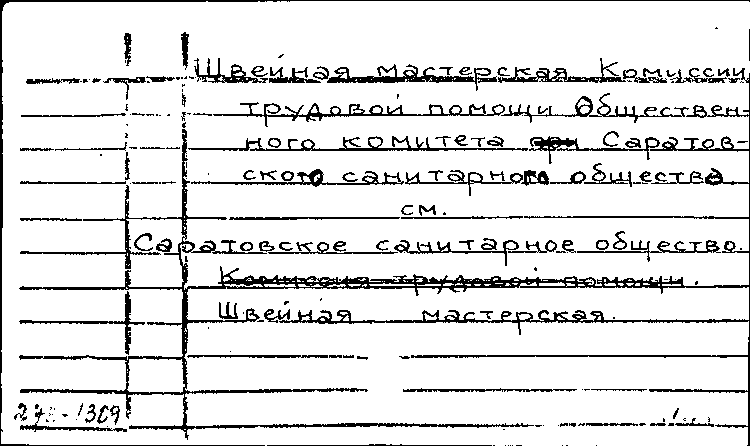 Швейная мастерская Комиссии
трудовой помощи Обществен-
ного комитета при Саратов-
ского санитарного общества
см.
Саратовское санитарное общество.
Комиссия трудовой помощи.
Швейная мастерская.